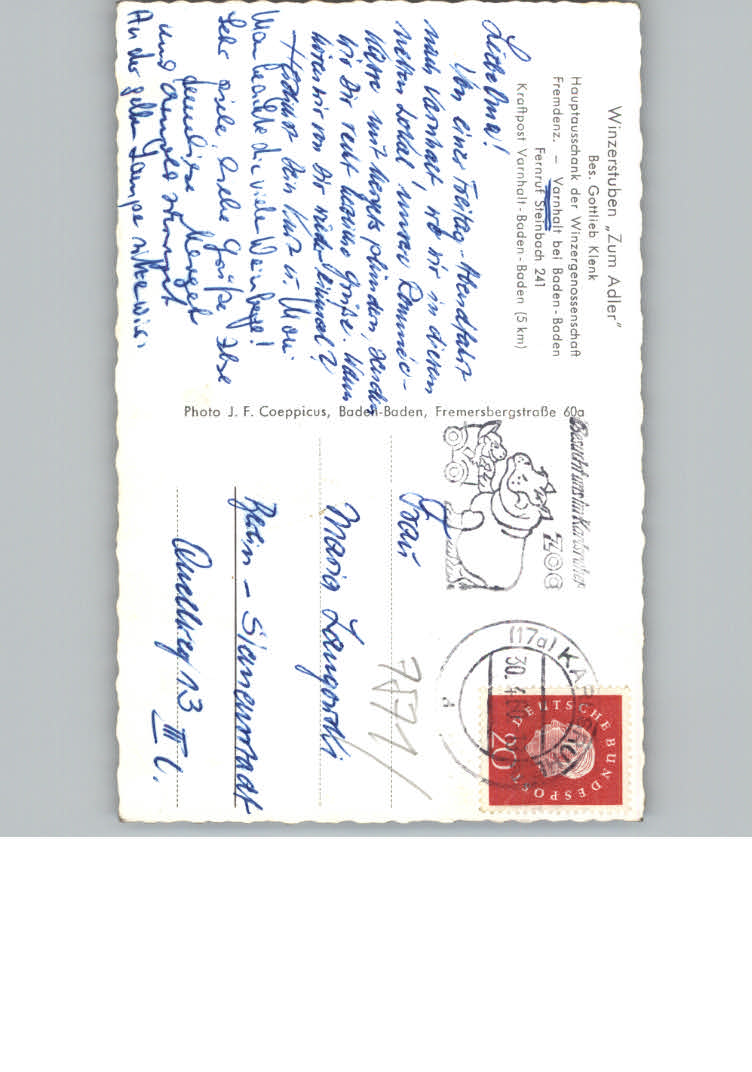 Winzerstuben „Zum Adler"
Bes. Gottlieb Klenk
Hauptausschank der Winzergenossenschaft
Fremdenz. – Varnhalt bei Baden-Baden
Fernruf Steinbach 241
Kraftpost Varnhalt-Baden-Baden (5 km)
Liebe Oma!
Von einer Freitag-Abendfahrt
nach Varnhalt, wo wir in diesem
netten Lokal unser Rommée-
Kasse mit Mergels plündern, senden
wir Dir recht herzliche Grüße. Wann
hören wir von Dir wieder einmal?
Herzlichst Dein Kurt u.
Man beachte die vielen Weinberge!
Sehr viele liebe Grüße Ihre
Familie Mergel
und
An der gelben Lampe sitzen wir.
Photo J. F. Coeppicus, Baden-Baden, Fremersbergstraße 60a
Besucht uns im Karlsruher
ZOO
(17a) KARLSRUHE
30.4.60
d
DEUTSCHE BUNDESPOST
20
Frau
Maria Langowski
7871/
Berlin - Siemensstadt
Quellweg 13 III l.